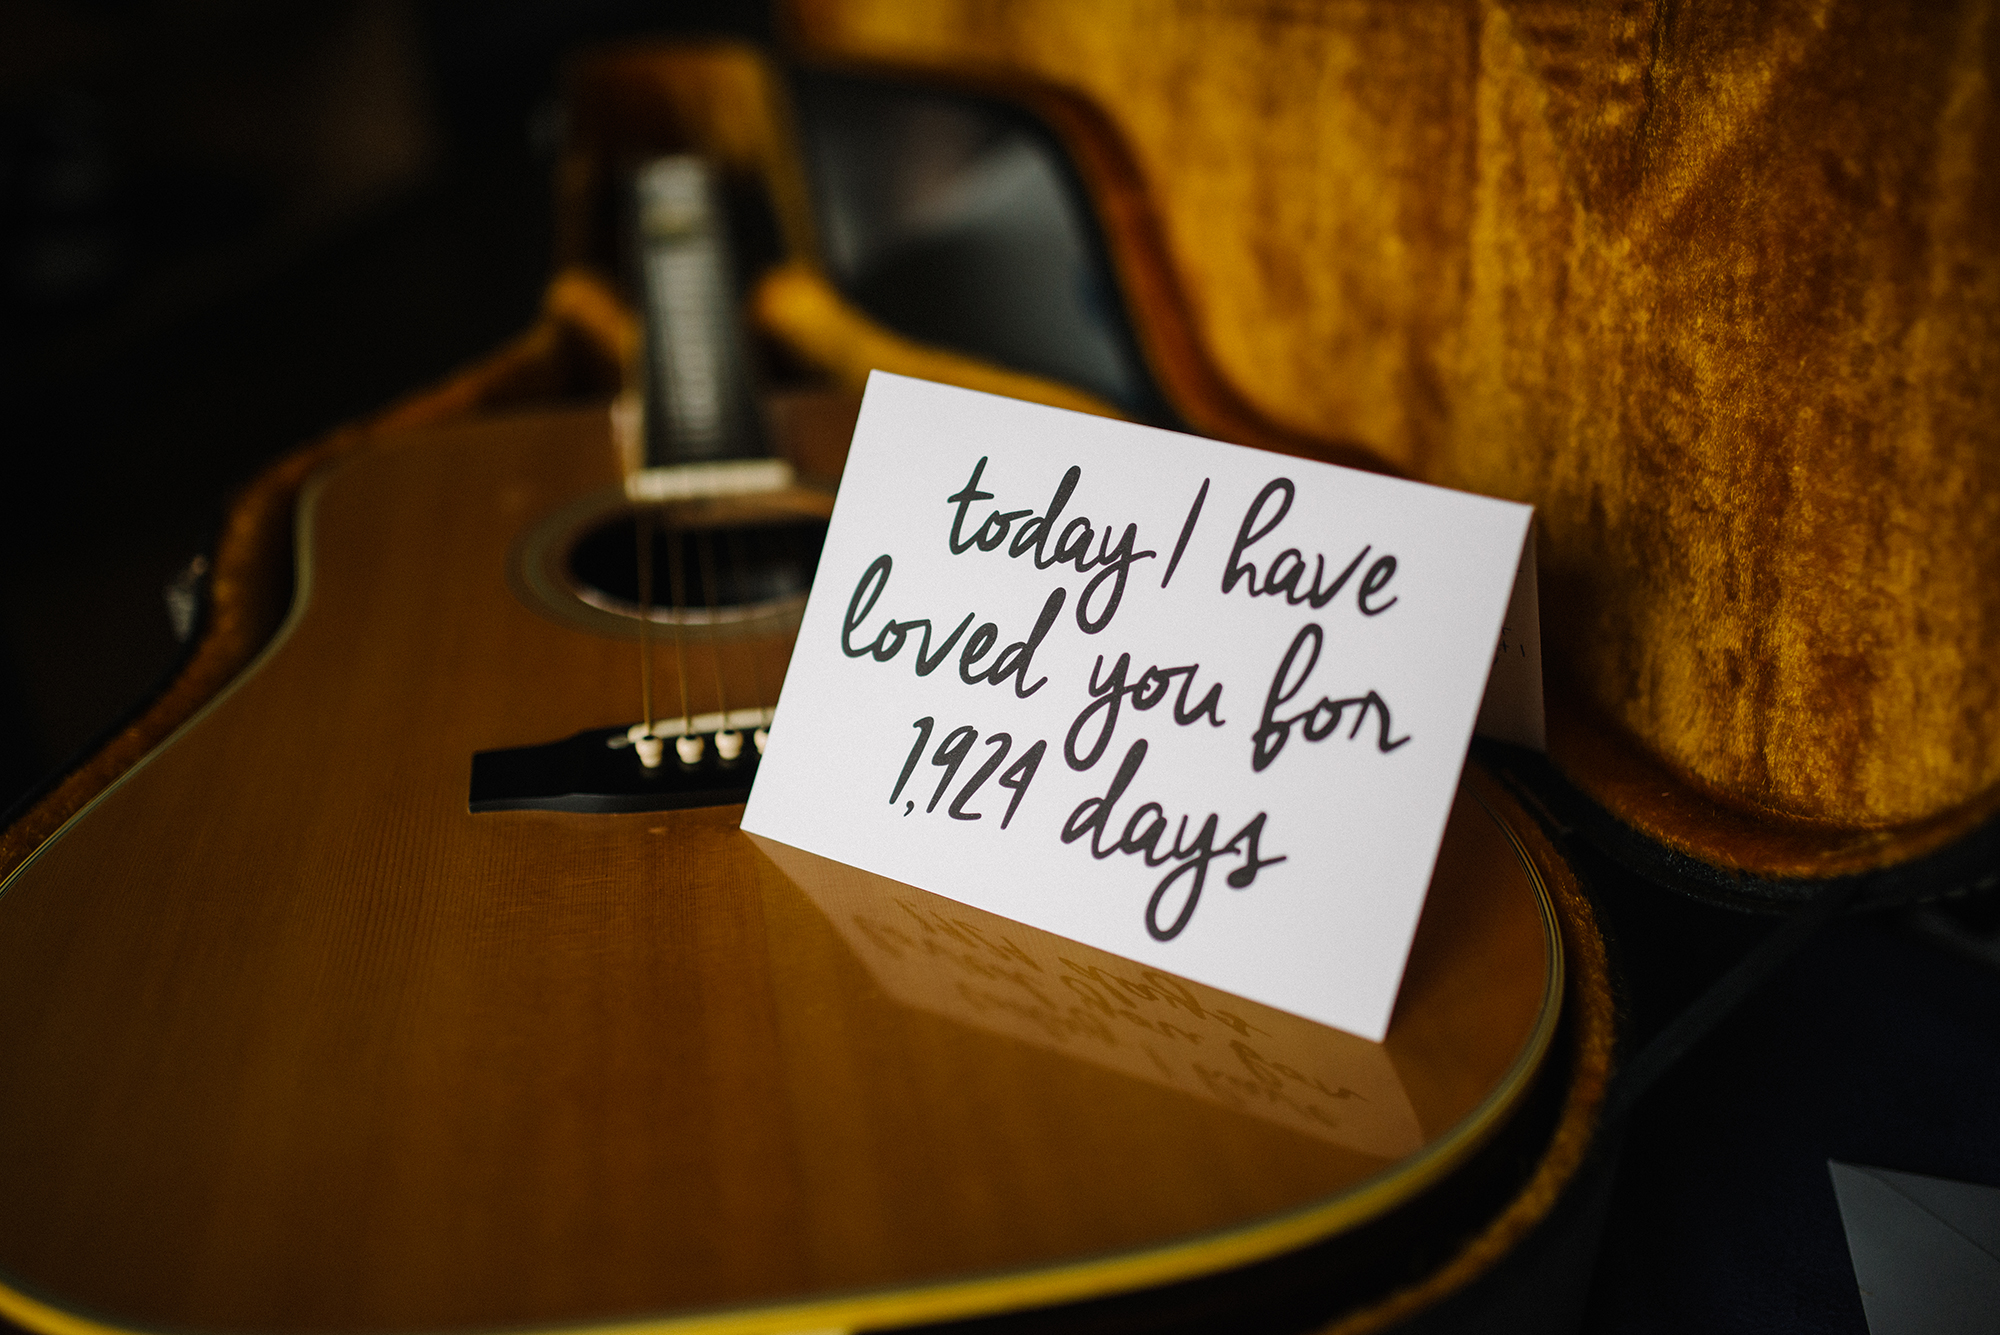 today I have
loved you for
1,924 days